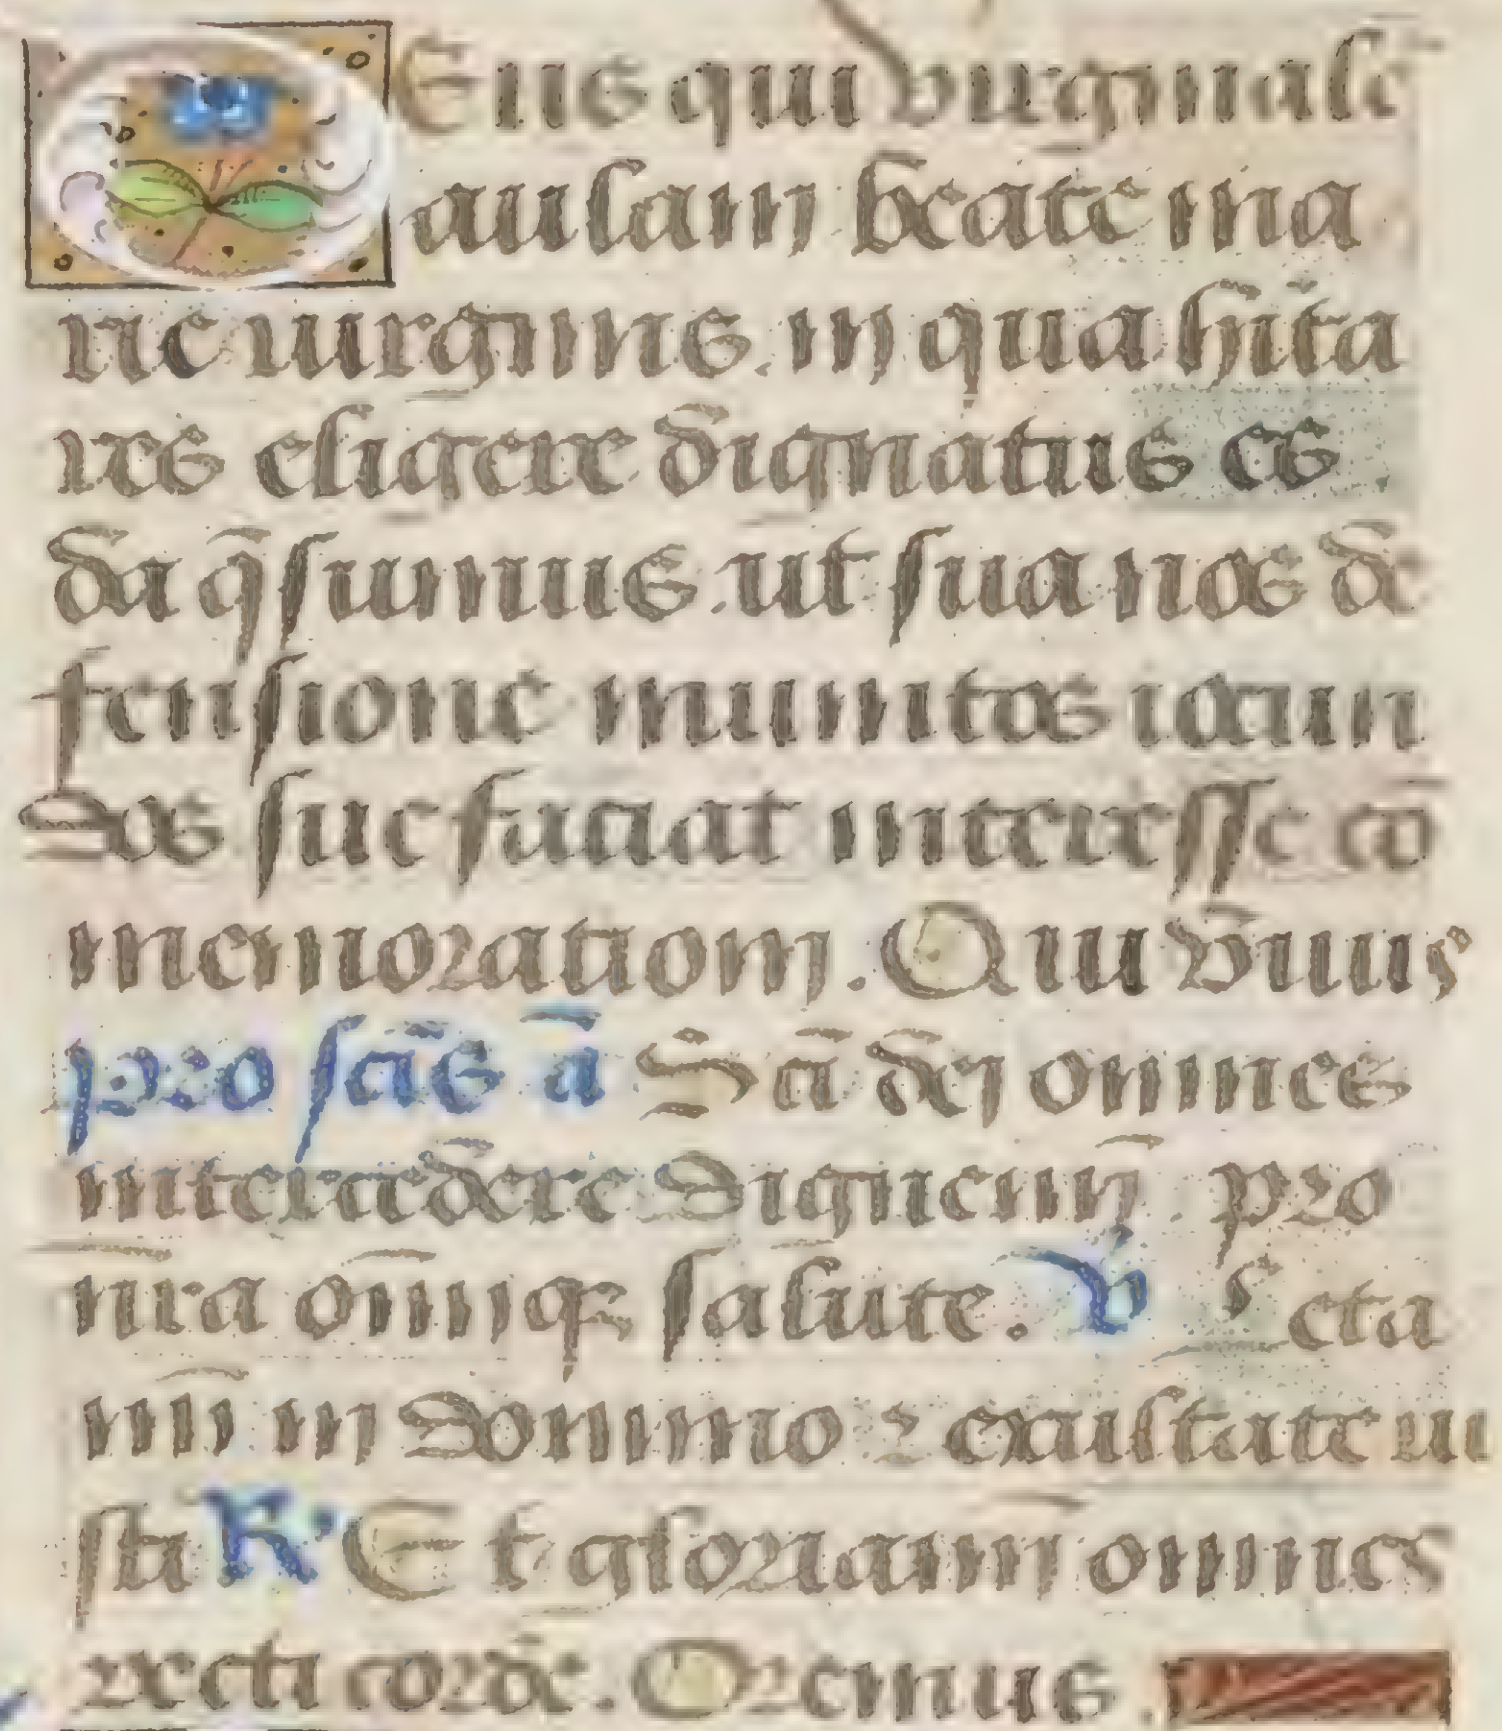 DEus qui virginalē
aulam beate ma
rie uirginis. in qua hita
res eligere dignatus es
da q̄sumus. ut sua nos de
fensione munitos iocun
dos sue faciat interesse cō
memorationi. Qui viuis
pro scīs ā Sā dei omnes
intercedere dignemī. pro
nr̄a om̄iqꝫ salute. V Scta
mī in domino ⁊ exultate iu
sti R Et gloriamī omnes
recti corde. Oremus.